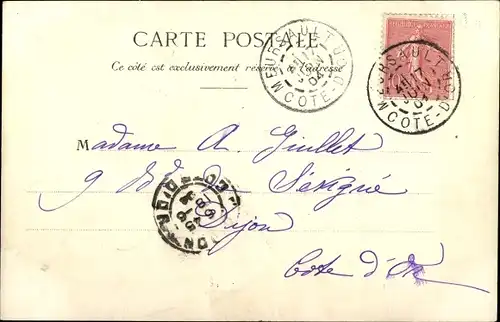 CARTE POSTALE
Ce côté est exclusivement réservé à l'adresse
MEURSAULT
CÔTE-D'OR
04
MEURSAULT
CÔTE-D'OR
Madame A. Guillet
9 Bd Sévigné
Dijon
Côte d'Or
DIJON